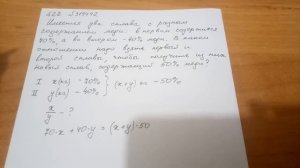 Имеется два сплава с разным
содержанием меди: в первом содержится
70%, а во втором - 40% меди. В каком
отношении надо взять первый и
второй сплавы, чтобы получить из них
новый сплав, содержащий 50% меди?
I x(кг) - 70%
II y(кг) - 40%
} (x+y)кг - 50%
x/y - ?
70·x + 40·y = (x+y)·50